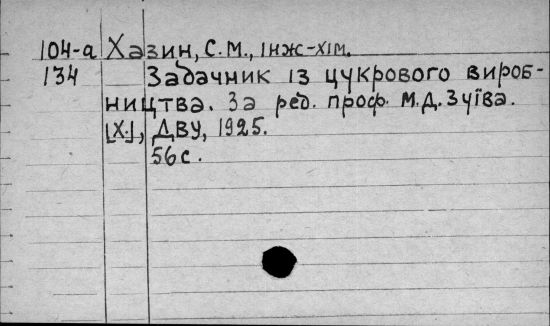 104-а Хазин, С.М., інж-хім.
134 Задачник із цукрового вироб-
ництва. За ред. проф. М.Д. Зуїва.
[Х.], ДВУ, 1925.
56с.